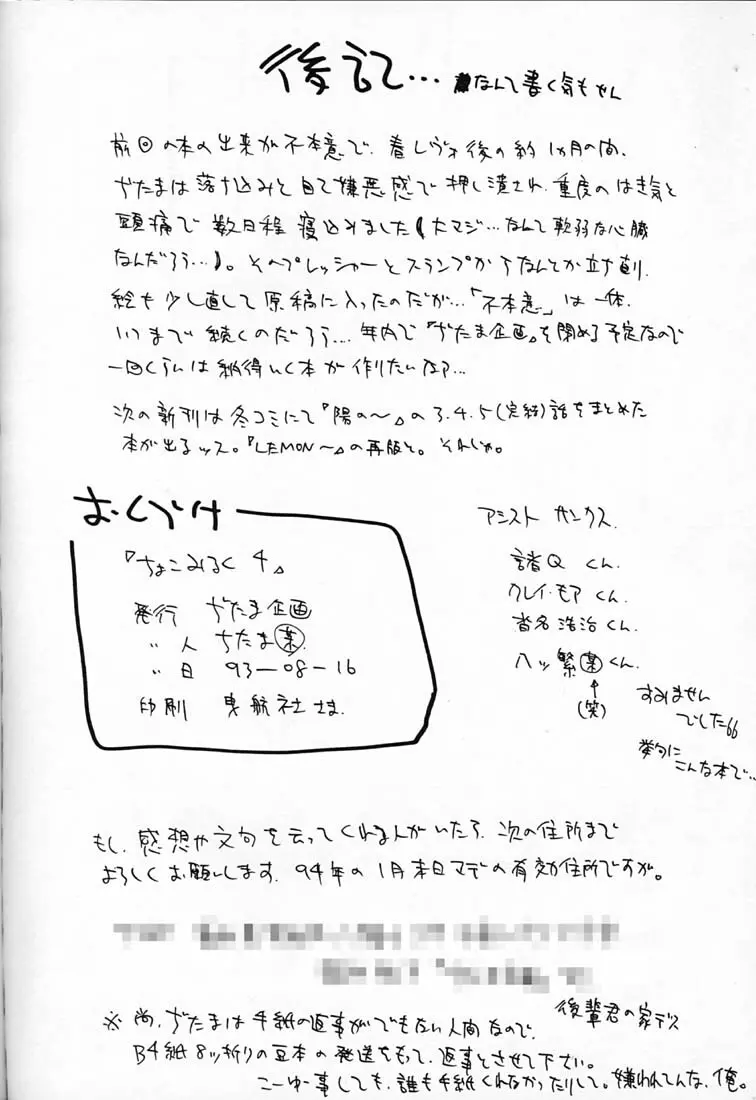 後記… なんて書く気もせん
前回の本の出来が不本意で、春レヴォ後の約1カ月の間、
ぢたまは落ち込みと自己嫌悪感で押し潰され、重度のはき気と
頭痛で数日程寝込みました(大マジ…なんて軟弱な心臓
なんだろう…)。そのプレッシャーとスランプからなんとか立ち直り、
絵も少し直して原稿に入ったのだが…「不本意」は一体
いつまで続くのだろう… 年内で『ぢたま企画』を閉める予定なので
一回くらいは納得いく本が作りたいなァ…
次の新刊は冬コミにて『陽の〜』の3.4.5(完結)話をまとめた
本が出るッス。『LEMON〜』の再版と。それしか。
おくづけ
『ちょこみるく 4』
発行 ぢたま企画
〃 人 ぢたま某
〃 日 93-08-16
印刷 曳航社さま
アシスト サンクス
諸Q くん.
クレイ・モア くん.
椎名浩治くん.
八ッ繁某くん.
↑
(笑)
すみません
でした66
挙句に
こんな本で…
もし、感想や文句を云ってくれる人がいたら、次の住所まで
よろしくお願いします。94年の1月末日マデの有効住所ですが。
後輩君の家デス
※尚、ぢたまは手紙の返事がでもない人間なので、
B4紙8ッ折りの豆本の発送をもって、返事とさせて下さい。
こーゆー事しても、誰も手紙くれなかったりして。嫌われてんな、俺。